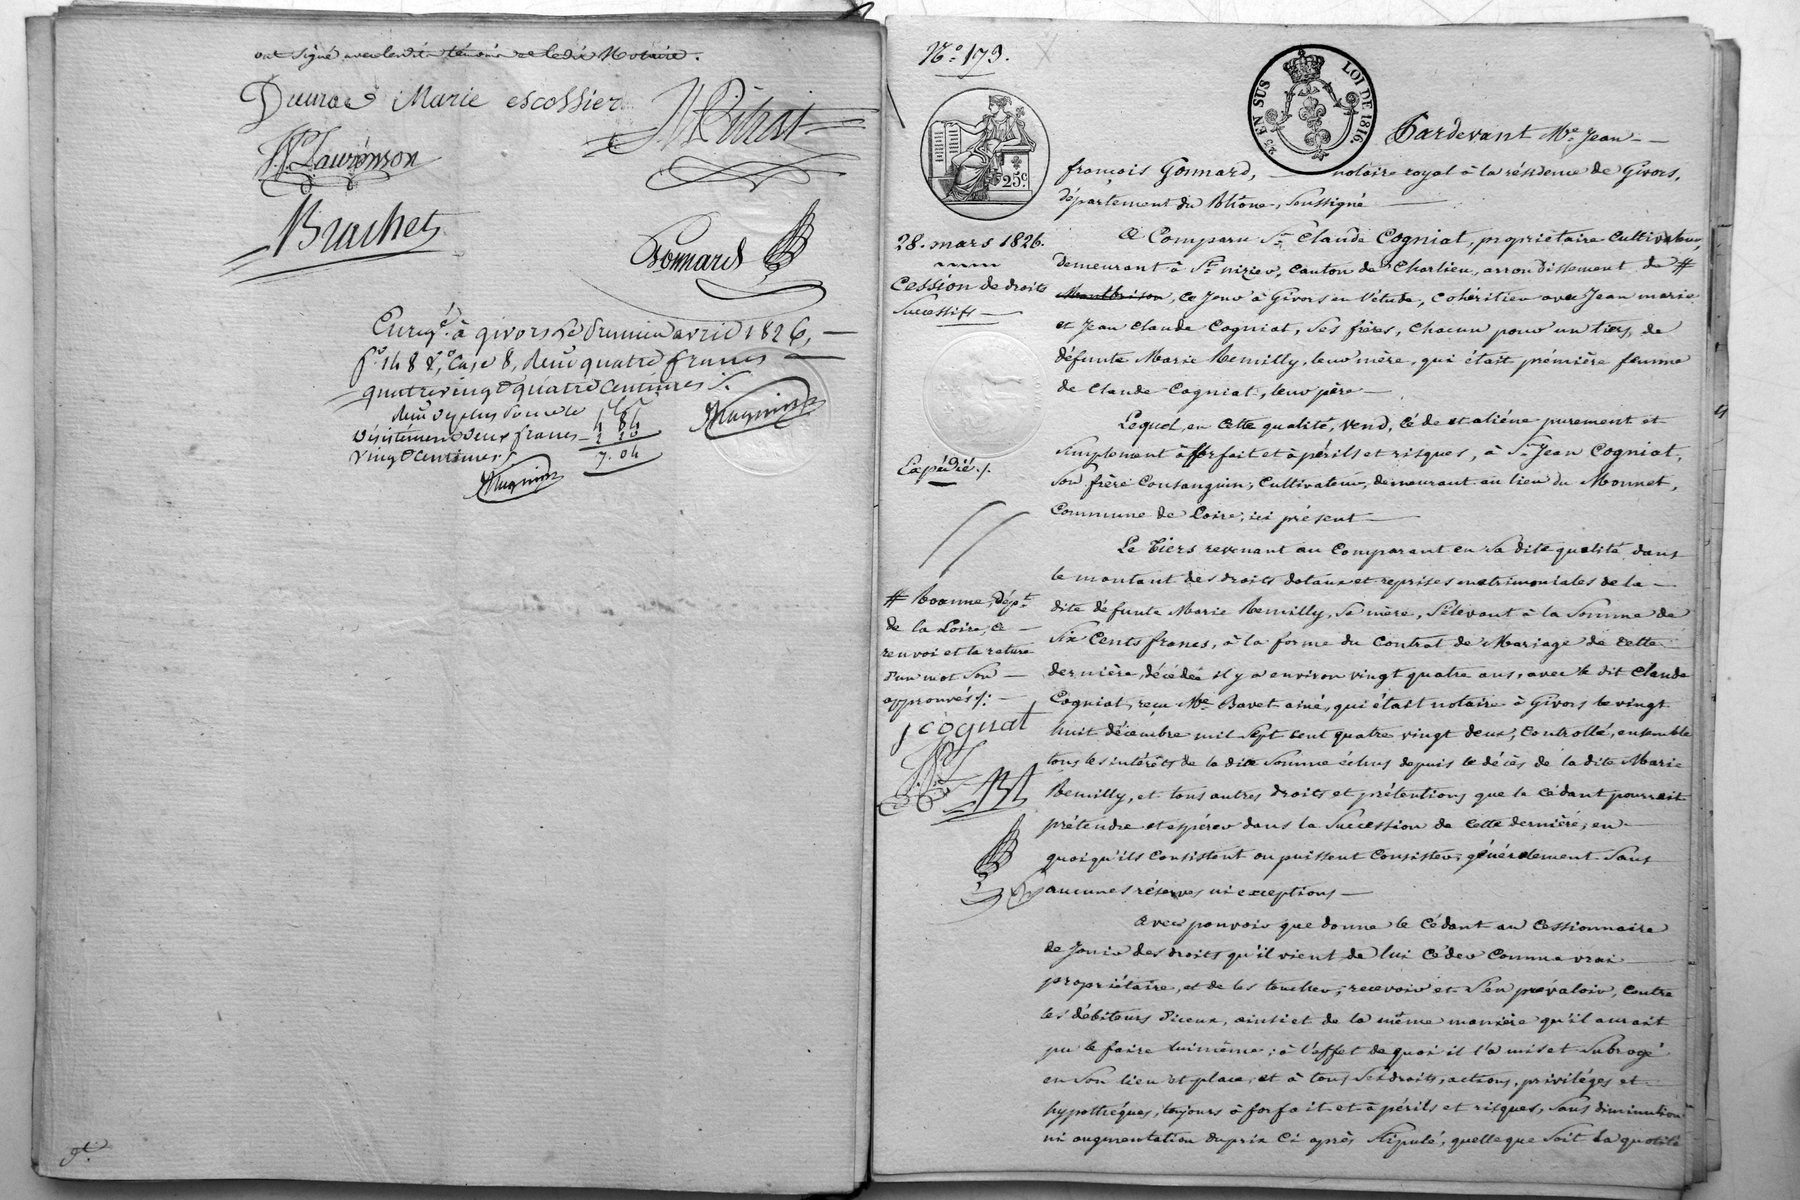 ont signé avec les dits témoins et le dit Notaire.
Marie escoffier
Laurenson
Bruchet
Gonnard
Enregé. à givors le premier avril 1826,
fo. 148 Vo. Case 8, reçu quatre francs
quatrevingt quatre centimes
désistement deux francs
vingt centimes
4 84
2 20
7. 04
Magnin
Magnin
No. 179.
25 EN SUS
LOI DE 1816.
25c
28. mars 1826.
Cession de droits
Successifs
Expédié./.
# Roanne, dépt.
de la Loire, ce
renvoi et la rature
d'un mot son
approuvés /.
j cognat
Pardevant Me. Jean
françois Gonnard, notaire royal à la résidence de Givors,
département du Rhône, soussigné
A Comparu Sr. Claude Cogniat, propriétaire Cultivateur,
demeurant à St. nizier, canton de Charlieu, arrondissement de #
Montbrison, ce jour à Givors en l'étude, Cohéritier avec Jean marie
et Jean Claude Cogniat, ses frères, chacun pour un tiers, de
défunte Marie Remilly, leur mère, qui était première femme
de Claude Cogniat, leur père
Lequel, en cette qualité, vend, cède et aliéne purement et
simplement à forfait et à périls et risques, à Sr. Jean Cogniat,
son frère Consanguin, Cultivateur, demeurant au lieu du Mornet,
Commune de Loire, ici présent
Le Tiers revenant au Comparant en sa dite qualité dans
le montant des droits dotaux et reprises matrimoniales de la
dite défunte Marie Remilly, sa mère, s'élevant à la somme de
Six Cents francs, à la forme du Contrat de Mariage de cette
dernière, décédée il y a environ vingt quatre ans, avec le dit Claude
Cogniat, reçu Me. Bavet ainé, qui était notaire à Givors le vingt
huit décembre mil sept cent quatre vingt deux, Controllé, ensemble
tous les intérêts de la dite somme échus depuis le décès de la dite Marie
Remilly, et tous autres droits et prétentions que le cédant pourrait
prétendre et espérer dans la succession de cette dernière, en
quoi qu'ils Consistent ou puissent Consister, généralement sans
aucunes réserves ni exceptions
Avec pouvoir que donne le Cédant au Cessionnaire
de Jouir des droits qu'il vient de lui céder Comme vrai
propriétaire, et de les toucher, recevoir et s'en prévaloir, contre
les débiteurs d'iceux, ainsi et de la même manière qu'il aurait
pu le faire lui même; à l'effet de quoi il l'a mis et subrogé
en son lieu et place, et à tous ses droits, actions, privilèges et
hypothèques, toujours à forfait et à périls et risques, sans diminution
ni augmentation du prix ci après stipulé, quelle que soit la quotité